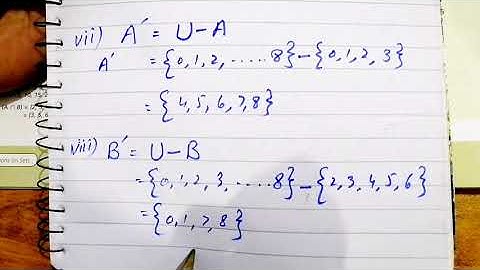 vii) A′ = U–A
A′ = {0,1,2, ..... 8} – {0,1,2,3}
= {4,5,6,7,8}
viii) B′ = U–B
= {0,1,2,3, ..... 8} – {2,3,4,5,6}
= {0,1,7,8}